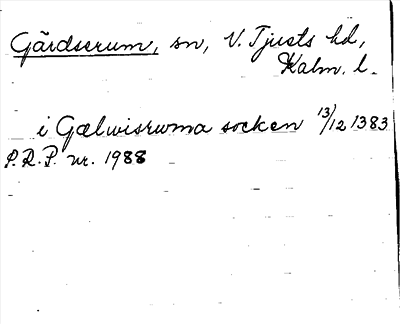 Gärdserum, sn, V. Tjusts hd,
Kalm. l.
i Gælwisrwma socken 13/12 1383
P.R.P. nr. 1988